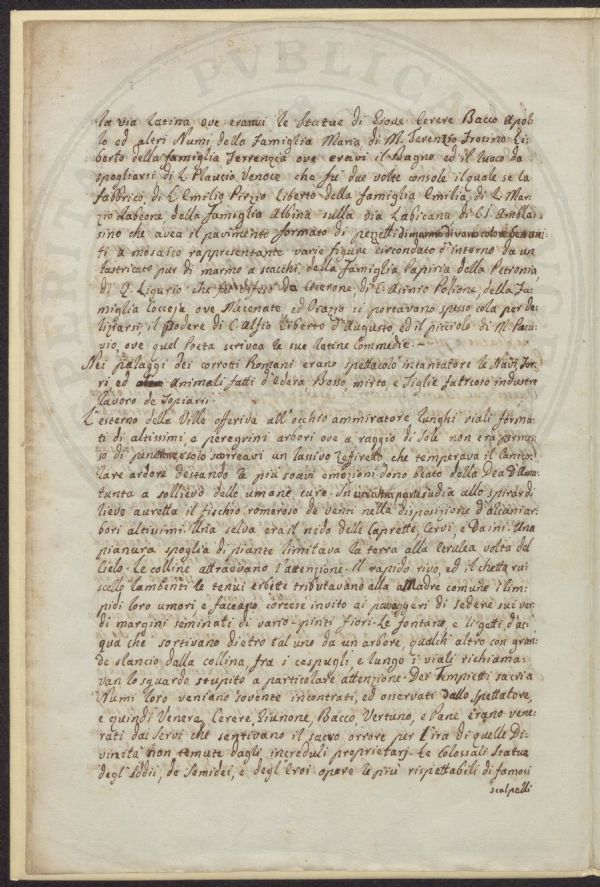 la via Latina ove eranvi le Statue di Giove Cerere Bacco Apol=
lo ed altri Numi della Famiglia Maria, di M. Terenzio Frosino Li=
berto della famiglia Terrenzia ove eravi il Bagno ed il luoco da
spogliarsi di L. Plaucio Venoce che fu due volte console il quale se la
fabbricò, di L. Emilio Pirzio Liberto della famiglia Emilia, di L. Mar=
zio Labeone, della famiglia Albina sulla via Labicana di C.
sino che avea il pavimento formato di pezzetti di marmo di vario colore
ti a mosaico rappresentante varie figure circondato d'intorno da un
lastricato pur di marmo a scacchi, della Famiglia Papiria della Petronia,
di Q. Ligurio che fu difeso da Cicerone, di C. Asinio Polione, della Fa=
miglia Cocceja ove Mecenate ed Orazio si portavano spesso colà per de=
liziarsi, il podere di C. Alfio Liberto d'Augusto, ed il picciolo di M. Pacu=
vio, ove quel Poeta scrivea le sue latine Commedie. –
Nei palaggi dei corrotti Romani erano spettacolo incantatore le Navi, Tor=
ri ed animali fatti d'edera Bosso, mirto, e Tiglie faticoso industre
lavoro de Topiarii.
L'esterno delle Ville offeriva all'occhio ammiratore lunghi viali forma=
ti di altissimi, e peregrini arbori ove a raggio di Sole non era permes=
so di penetrare, solo scorreavi un lascivo zeffiretto che temperava il canico=
lare ardore destando le più soavi emozioni dono beato della Dea d'Ama=
tunta a sollievo delle umane cure. In un'altra parte s'udia allo spirar di
lieve auretta il fischio romoroso de venti nella disposizione d'alian ar=
bori altissimi. Una selva era il nido delle Caprette, Cervi, e Daini. Una
pianura spoglia di piante limitava la terra alla cerulea volta del
Cielo. Le colline attraevano l'attenzione. Il rapido rivo, ed il cheto ru=
scello lambenti le tenui erbette tributavano alla Madre comune i lim=
pidi loro umori e faceano cortese invito ai passaggeri di sedere sui ver=
di margini seminati di vario-pinti fiori. Le fontane, e li getti d'ac=
qua che sortivano dietro tal uno da un arbore, qualch'altro con gran=
de slancio dalla collina, fra i cespugli, e lungo i viali richiama=
van lo sguardo stupito a particolare attenzione. Dei Tempietti sacri a
Numi loro veniano sovente incontrati, ed onservati dallo spettatore,
e quindi Venere, Cerere, Giunone, Bacco, Vertuno, e Pane erano vene=
rati dai Servi che sentivano il sacro orrore per l'ira di quelle Di=
vinità non temute dagli increduli proprietarj. Le Colossali Statue
degl'Iddii, de Semidei, e degl'Eroi opere le più rispettabili di famosi
scalpelli